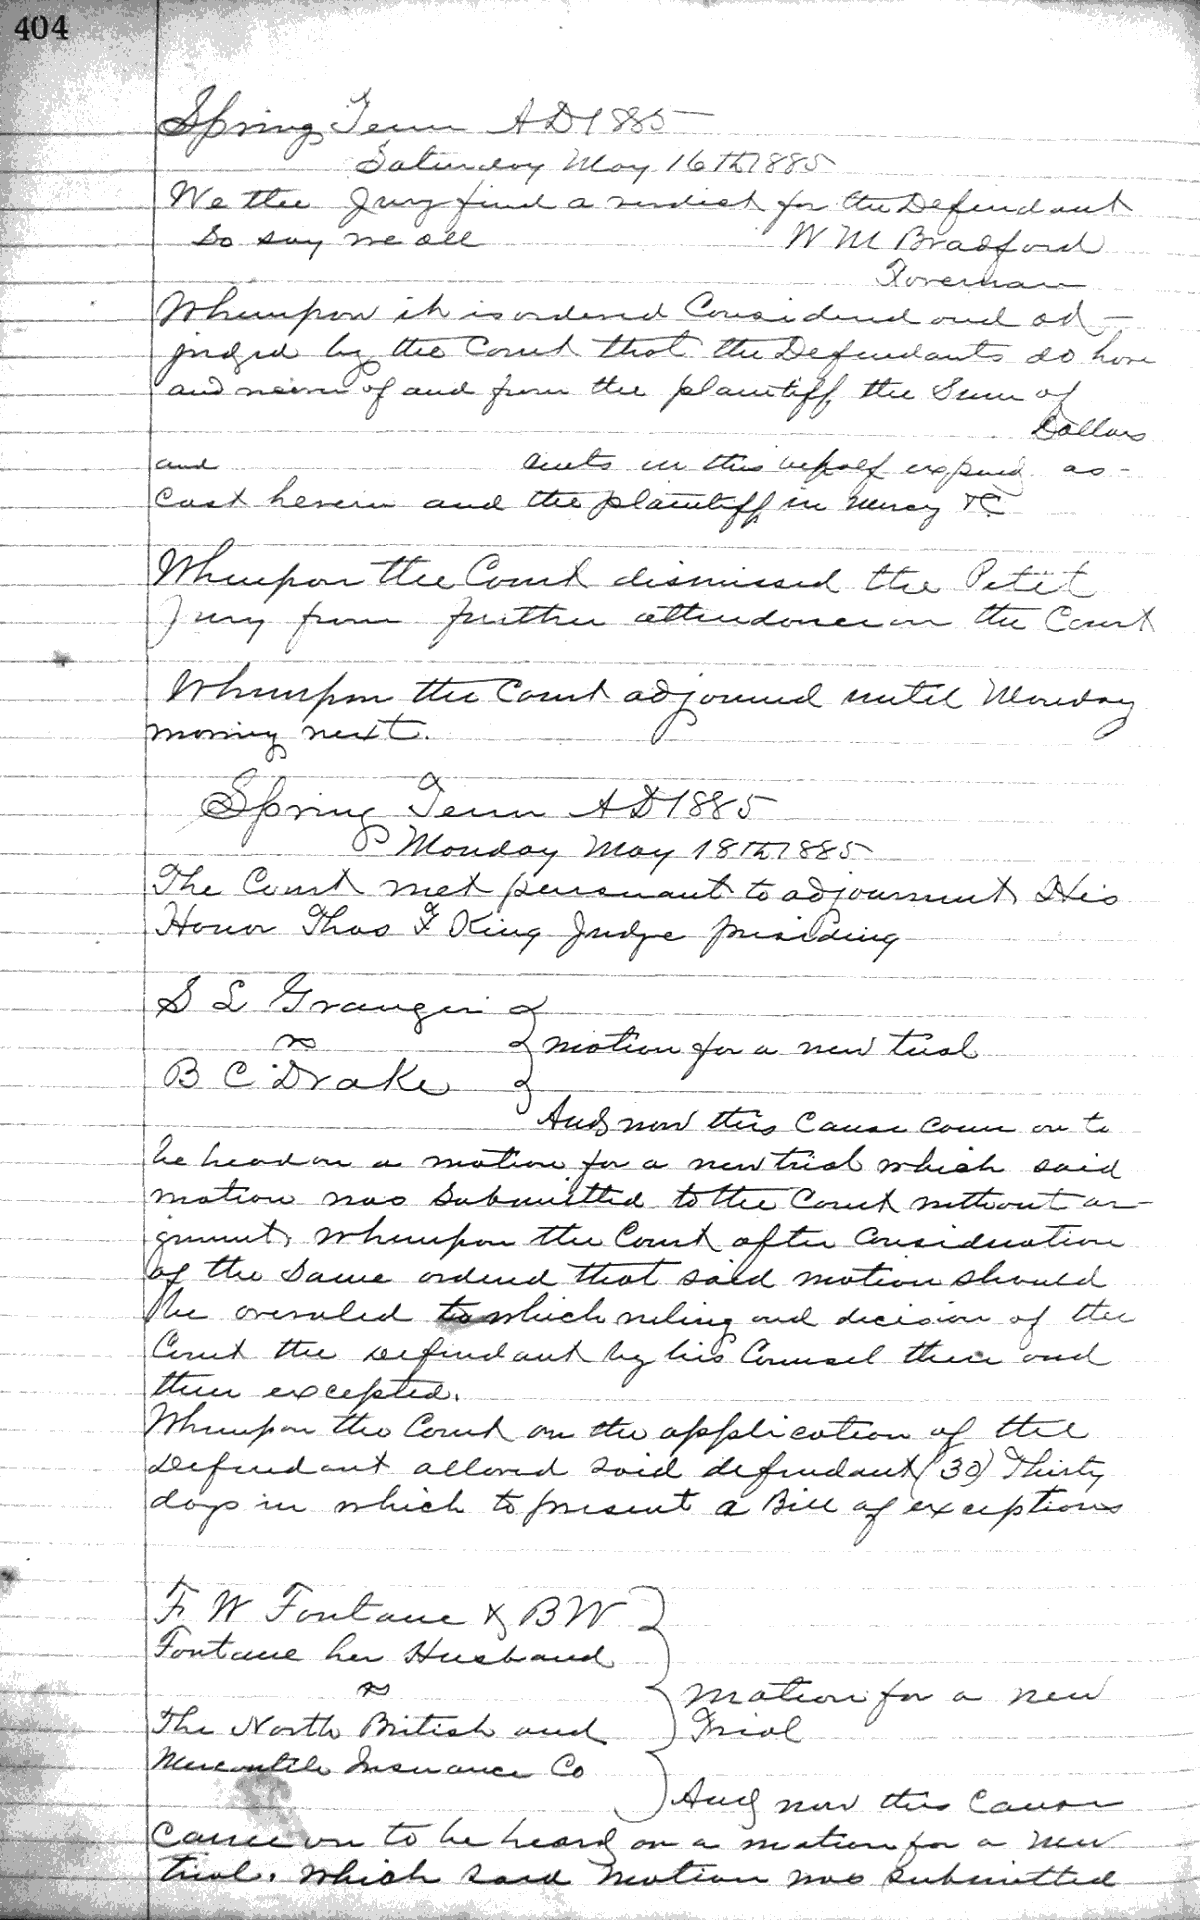 404
Spring Term AD 1885
Saturday May 16th 1885
We the Jury find a verdict for the Defendant
So say we all W M Bradford
Foreman
Whereupon it is ordered Considered and ad-
judged by the Court that the Defendants do have
and receive of and from the plaintiff the Sum of
Dollars
and cents in this behalf expend as
Cost herein and the plaintiff in mercy &C
Whereupon the Court dismissed the Petit
Jury from further attendance on the Court
Whereupon the Court adjourned until Monday
morning next.
Spring Term AD 1885
Monday May 18th 1885
The Court met pursuant to adjournment His
Honor Thos F King Judge presiding
S L Granger
vs
B C Drake
motion for a new trial
And now this Cause came on to
be heard on a motion for a new trial which said
motion was Submitted to the Court without ar-
gument, whereupon the Court after Consideration
of the Same ordered that said motion should
be overruled to which ruling and decision of the
Court the Defendant by his Counsel there and
then excepted.
Whereupon the Court on the application of the
Defendant allowed said defendant (30) Thirty
days in which to present a Bill of exceptions
F W Fontane & B W
Fontane her Husband
vs
The North British and
Mercantile Insurance Co
Motion for a new
Trial
And now this Cause
came on to be heard on a motion for a new
trial. which said motion was submitted